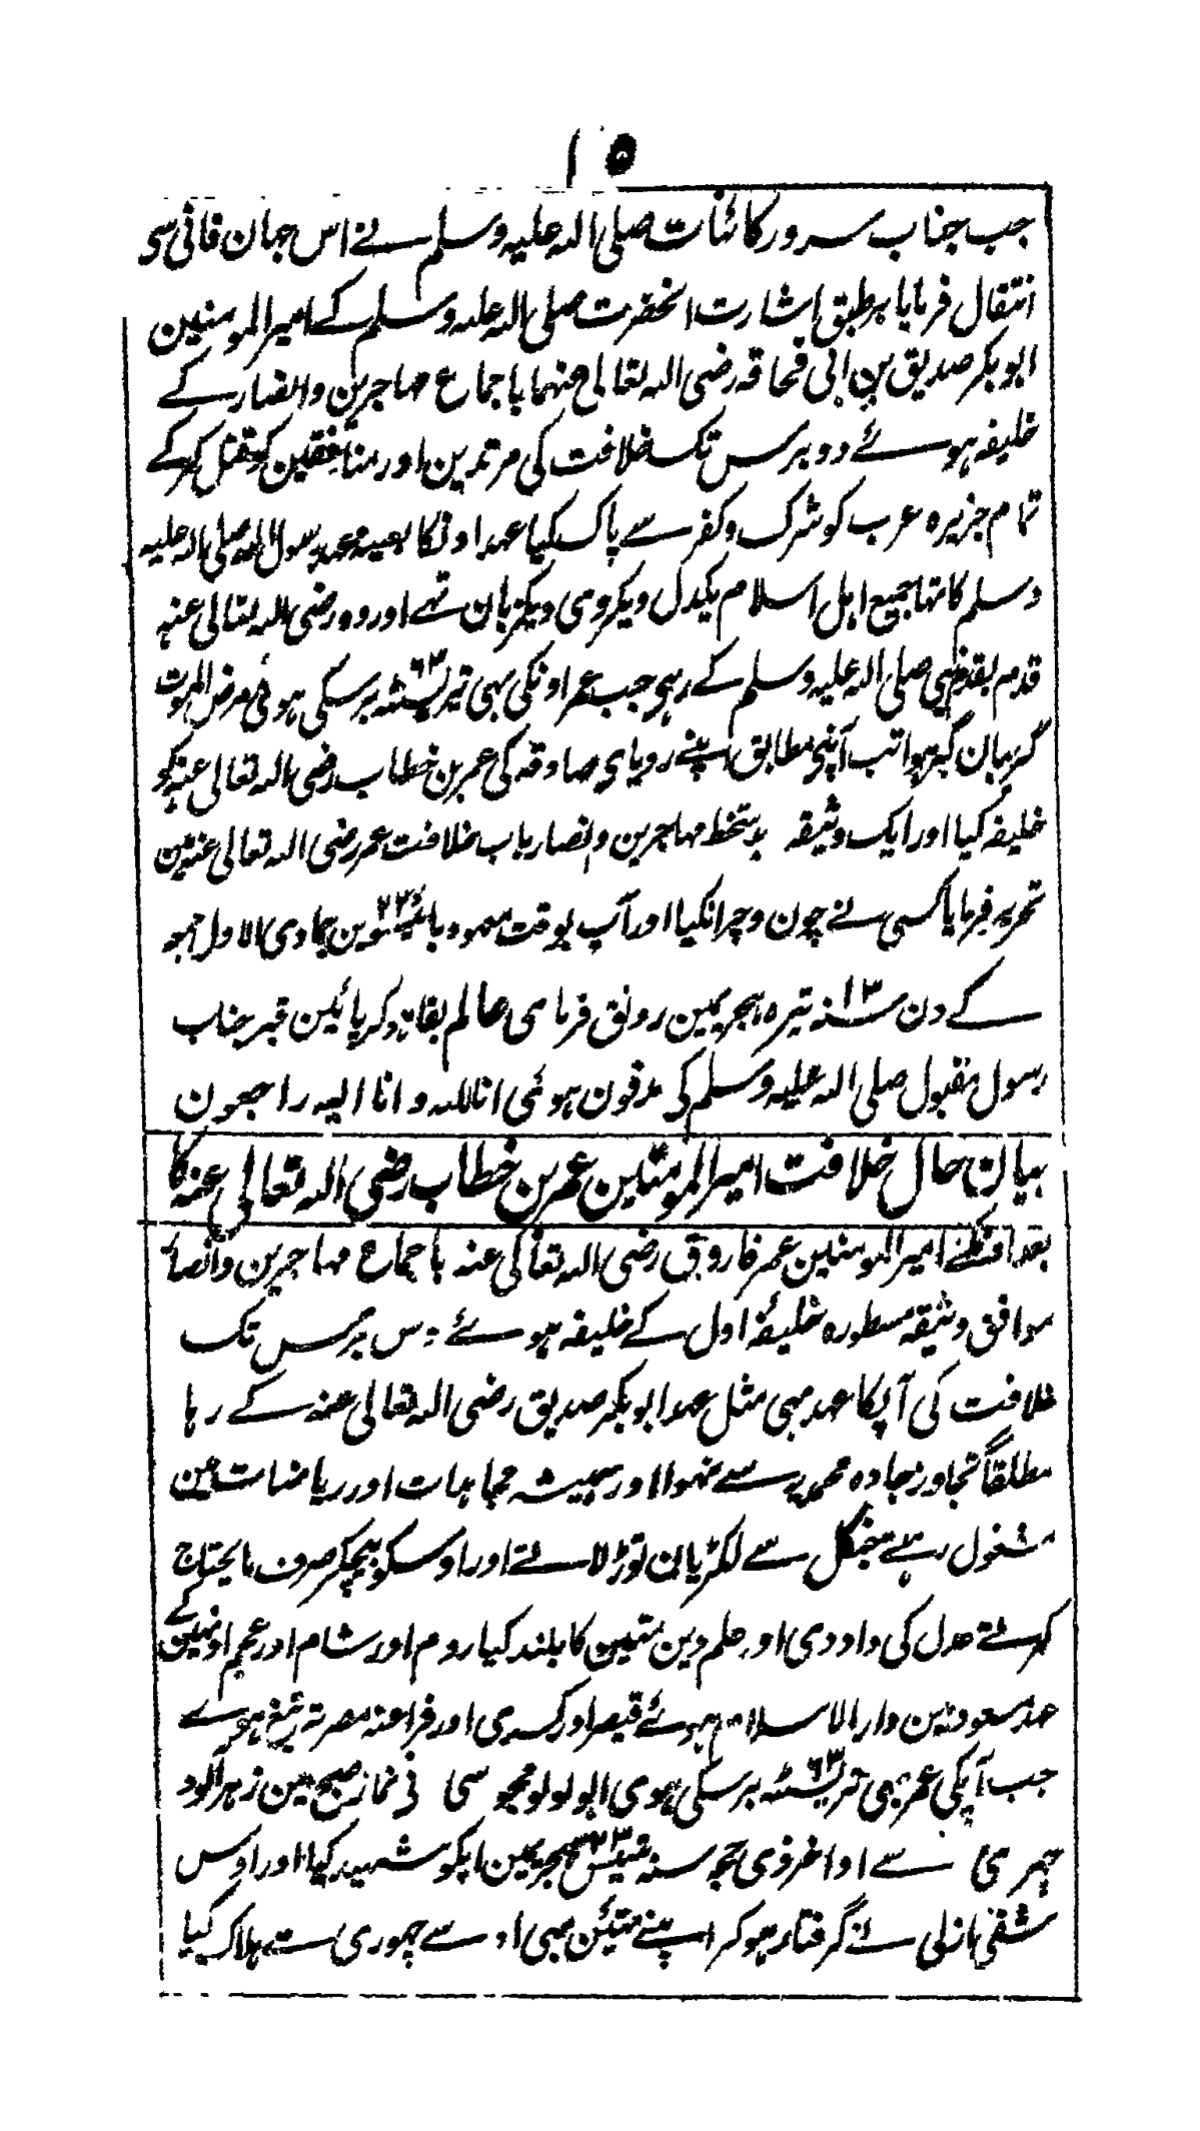 ۱۵
جب جناب سرور کائنات صلی اللہ علیہ وسلم نے اس جہان فانی سی
انتقال فرمایا برطبق اشارت انحضرت صلی اللہ علیہ وسلم کے امیر المومنین
ابوبکر صدیق بن ابی قحافہ رضی اللہ تعالی عنہما باجماع مہاجرین وانصار کے
خلیفہ ہوئے دو برس تک خلافت کی مرتدین اور منافقین کو قتل کرکے
تمام جزیرہ عرب کو شرک وکفر سے پاک کیا عہد اونکا بعینہ عہد رسول اللہ صلی اللہ علیہ
وسلم کا تہا جمیع اہل اسلام یکدل ویکروی ویکزبان تہے اور وہ رضی اللہ تعالی عنہ
قدم بقدم نبی صلی اللہ علیہ وسلم کے رہی جب عمر اونکی بہی تریسٹہ ۶۳ برسکی ہوئی مرض الموت
گریبان گیر ہوا تب آپنی مطابق اپنے رویای صادقہ کی عمر بن خطاب رضی اللہ تعالی عنہ کو
خلیفہ کیا اور ایک وثیقہ بدستخط مہاجرین وانصار باب خلافت عمر رضی اللہ تعالی عنہ مین
تحریر فرمایا کسی نے چون وچرا نکیا اور آپ بوقت معہود بائیسوین ۲۲ جمادی الاول جمعہ
کے دن سنہ ۱۳ تیرہ ہجریمین رونق فرمای عالم بقا ہوکر پائین قبر جناب
رسول مقبول صلی اللہ علیہ وسلم کی مدفون ہوئی انا للہ وانا الیہ راجعون
بیان حال خلافت امیر المومنین عمر بن خطاب رضی اللہ تعالی عنہ کا
بعد اونکے امیر المومنین عمر فاروق رضی اللہ تعالی عنہ باجماع مہاجرین وانصار
موافق وثیقہ مسطورہ خلیفۂ اول کے خلیفہ ہوئے دس برس تک
خلافت کی آپکا عہد بہی مثل عہد ابوبکر صدیق رضی اللہ تعالی عنہ کے رہا
مطلقاً تجاوز جادہ محمدیہ سے نہوا اور ہمیشہ مجاہدات اور ریاضات مین
مشغول رہے جنگل سے لکڑیان توڑ لاتے اور اوسکو بیچکر صرف مایحتاج
کرتے عدل کی داد دی اور علم دین متین کا بلند کیا روم اور شام اور عجم اونہین کے
عہد مسعود مین دار الاسلام ہوئے قیصر اور کسری اور فراعنہ مصر تہ تیغ ہوے
جب آپکی عمر بہی تریسٹہ ۶۳ برسکی ہوی ابو لولو مجوسی نی نماز صبح مین زہر آلود
چہری سے اواخر ذی حجہ سنہ تیئیس ۲۳ ہجریمین اپکو شہید کیا اور اوس
شقی ازلی نے گرفتار ہوکر اپنے تئین بہی اوسے چہوری سے ہلاک کیا